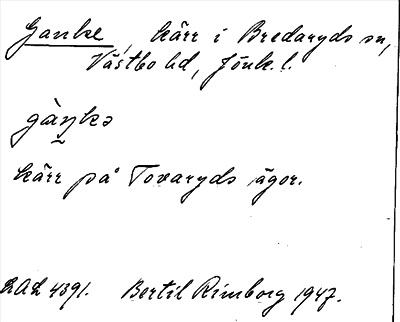 Ganke, kärr i Bredaryds sn,
Västbo hd, Jönk. l.
gàŋkə
kärr på Tovaryds ägor.
RAL 4391. Bertil Rimborg 1947.